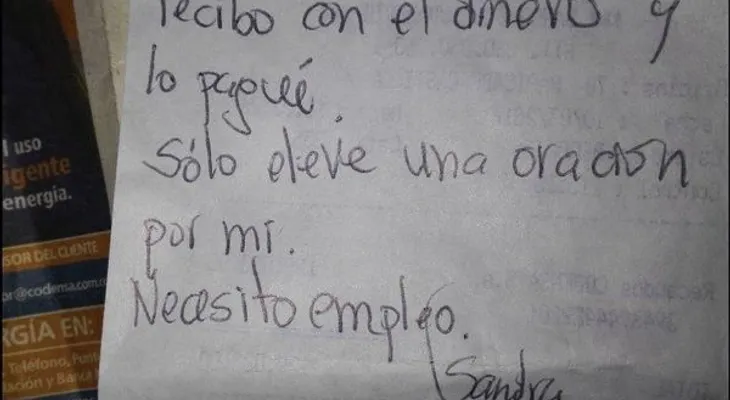 recibo con el dinero y
lo pagué.
Sólo eleve una oración
por mi.
Necesito empleo.
Sandra
l uso
igente
energía.
SOR DEL CLIENTE
or@codensa.com.
RGÍA EN:
Teléfono, Punt
lación y Banca